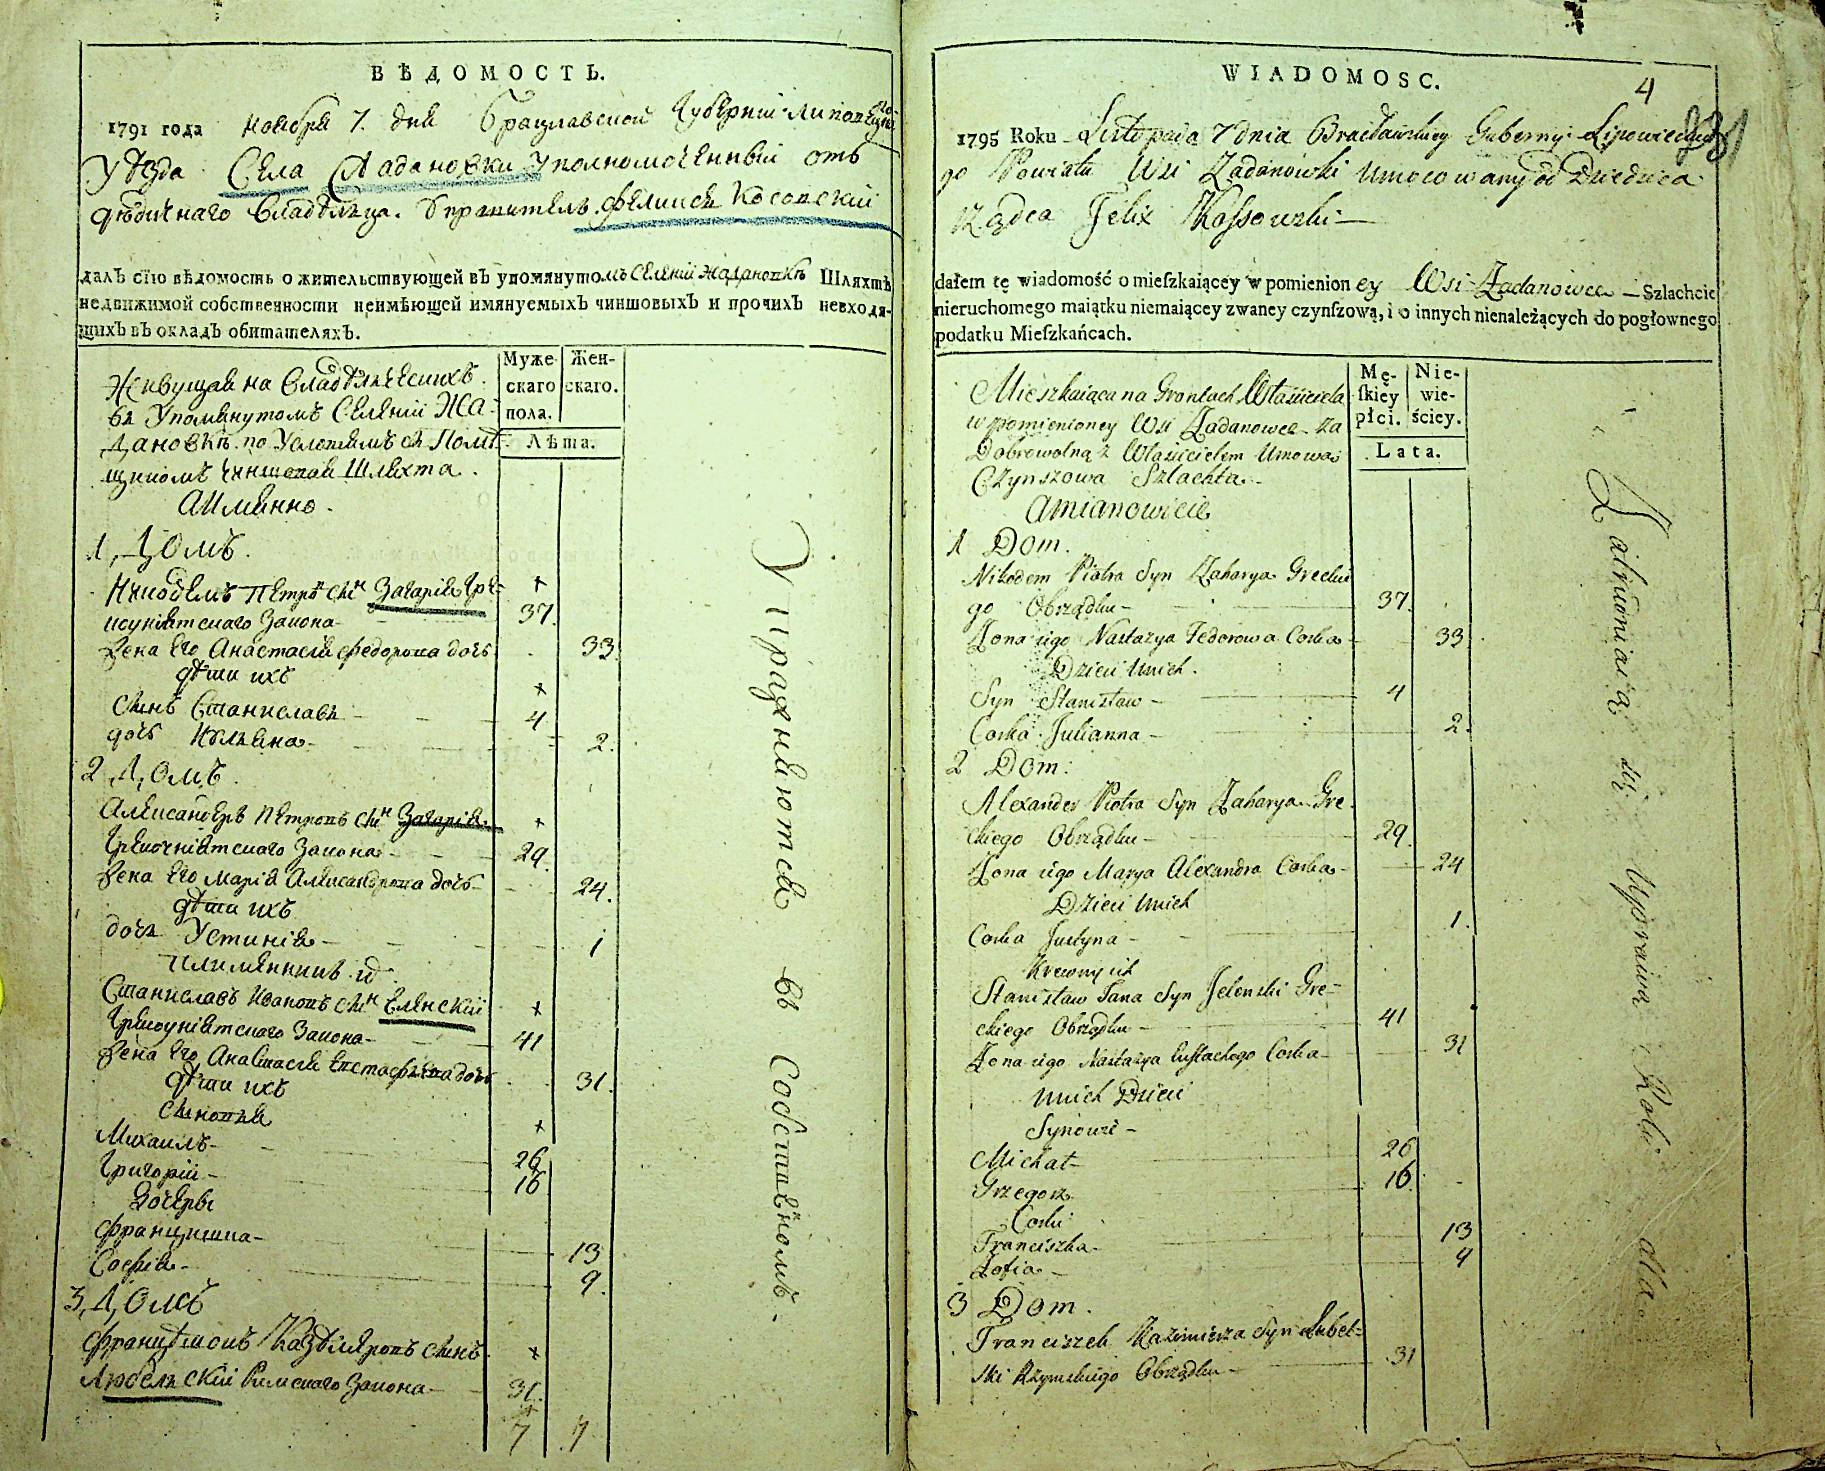 ВѢДОМОСТЬ.
1791 года Ноября 7. дня Брацлавской Губерніи Липовецкого
Уѣзда Села Жадановки Уполномоченный отъ
дѣдичнаго Владѣльца. Управитель. Феликсъ Косовскій
далъ сїю вѣдомость о жительствующей въ упомянутомъ Селеніи Жадановкѣ Шляхтѣ
недвижимой собственности неимѣющей имянуемыхъ чиншовыхъ и прочихъ невходя-
щихъ въ окладъ обитателяхъ.
Муже- Жен-
скаго скаго.
пола.
Лѣта.
Живущая на Владѣлческихъ
въ Упомянутомъ Селеніи Жа-
дановкѣ. по Условіямъ съ Помѣ-
щикомъ Чиншовая Шляхта.
А Имянно.
1, Домъ.
Никодимъ Петровъ сынъ Захарія Гре-
коуніятскаго Закона 37.
Жена Его Анастасія Федорова дочь 33.
дѣти ихъ
сынъ Станиславъ 4
дочь Юліана 2.
2 Домъ.
Александръ Петровъ сынъ Захарія.
Грекоуніятскаго Закона 29.
Жена Его Марія Александрова дочь 24.
дѣти ихъ
дочь Устинія 1
племянникъ
Станиславъ Ивановъ сынъ Еленскій
Грекоуніятскаго Закона 41
Жена Его Анастасія Евстафіева дочь 31.
дѣти ихъ
сыновья
Михаилъ 26
Григорій 16
Дочери
Францишка 13
Софія 9.
3, Домъ
Францишокъ Казимеровъ сынъ
Любельскій Римскаго Закона 31.
7 7
Упражняются въ Собственномъ.
WIADOMOSC.
4
1795 Roku Listopada 7 dnia Bracławskiey Guberny Lipowieckie-
go Powiatu Wsi Zadanowki Umocowany od Dziedzica
rządca Felix Kossowski
dałem tę wiadomość o mieſzkaiącey w pomienioney Wsi Zadanowce Szlachcie
nieruchomego maiątku niemaiącey zwaney czynſzową, i o innych nienależących do pogłownego
podatku Mieſzkańcach.
Mę- Nie-
ſkiey wie-
płci. ściey.
Lata.
Mieszkaiąca na Grontach Właściciela
w pomienioney Wsi Zadanowce za
Dobrowolną z Właścicielem Umową
Czynszowa Szlachta
Amianowicie
1 Dom.
Nikodem Piotra Syn Zaharya Greckie
go Obrządku 37.
Zona iego Nastazya Fedorowa Corka 33
Dzieci Unich.
Syn Stanisław 4
Corka Julianna 2.
2 Dom:
Alexander Piotra Syn Zaharya Gre
ckiego Obrządku 29.
Zona iego Marya Alexandra Corka 24
Dzieci Unich
Corka Justyna 1.
Krewny ich
Stanisław Jana Syn Jelenski Gre-
ckiego Obrządku 41
Zona iego Nastazya Eustachego Corka 31
Unich Dzieci
Synowi
Michał 26
Grzegorz 16.
Corki
Franciszka 13
Zofia 9
3 Dom.
Franciszek Kazimierza Syn Lubel-
ski Rzymskiego Obrządku 31
Zatrudniaią się Uprawą Roli dla